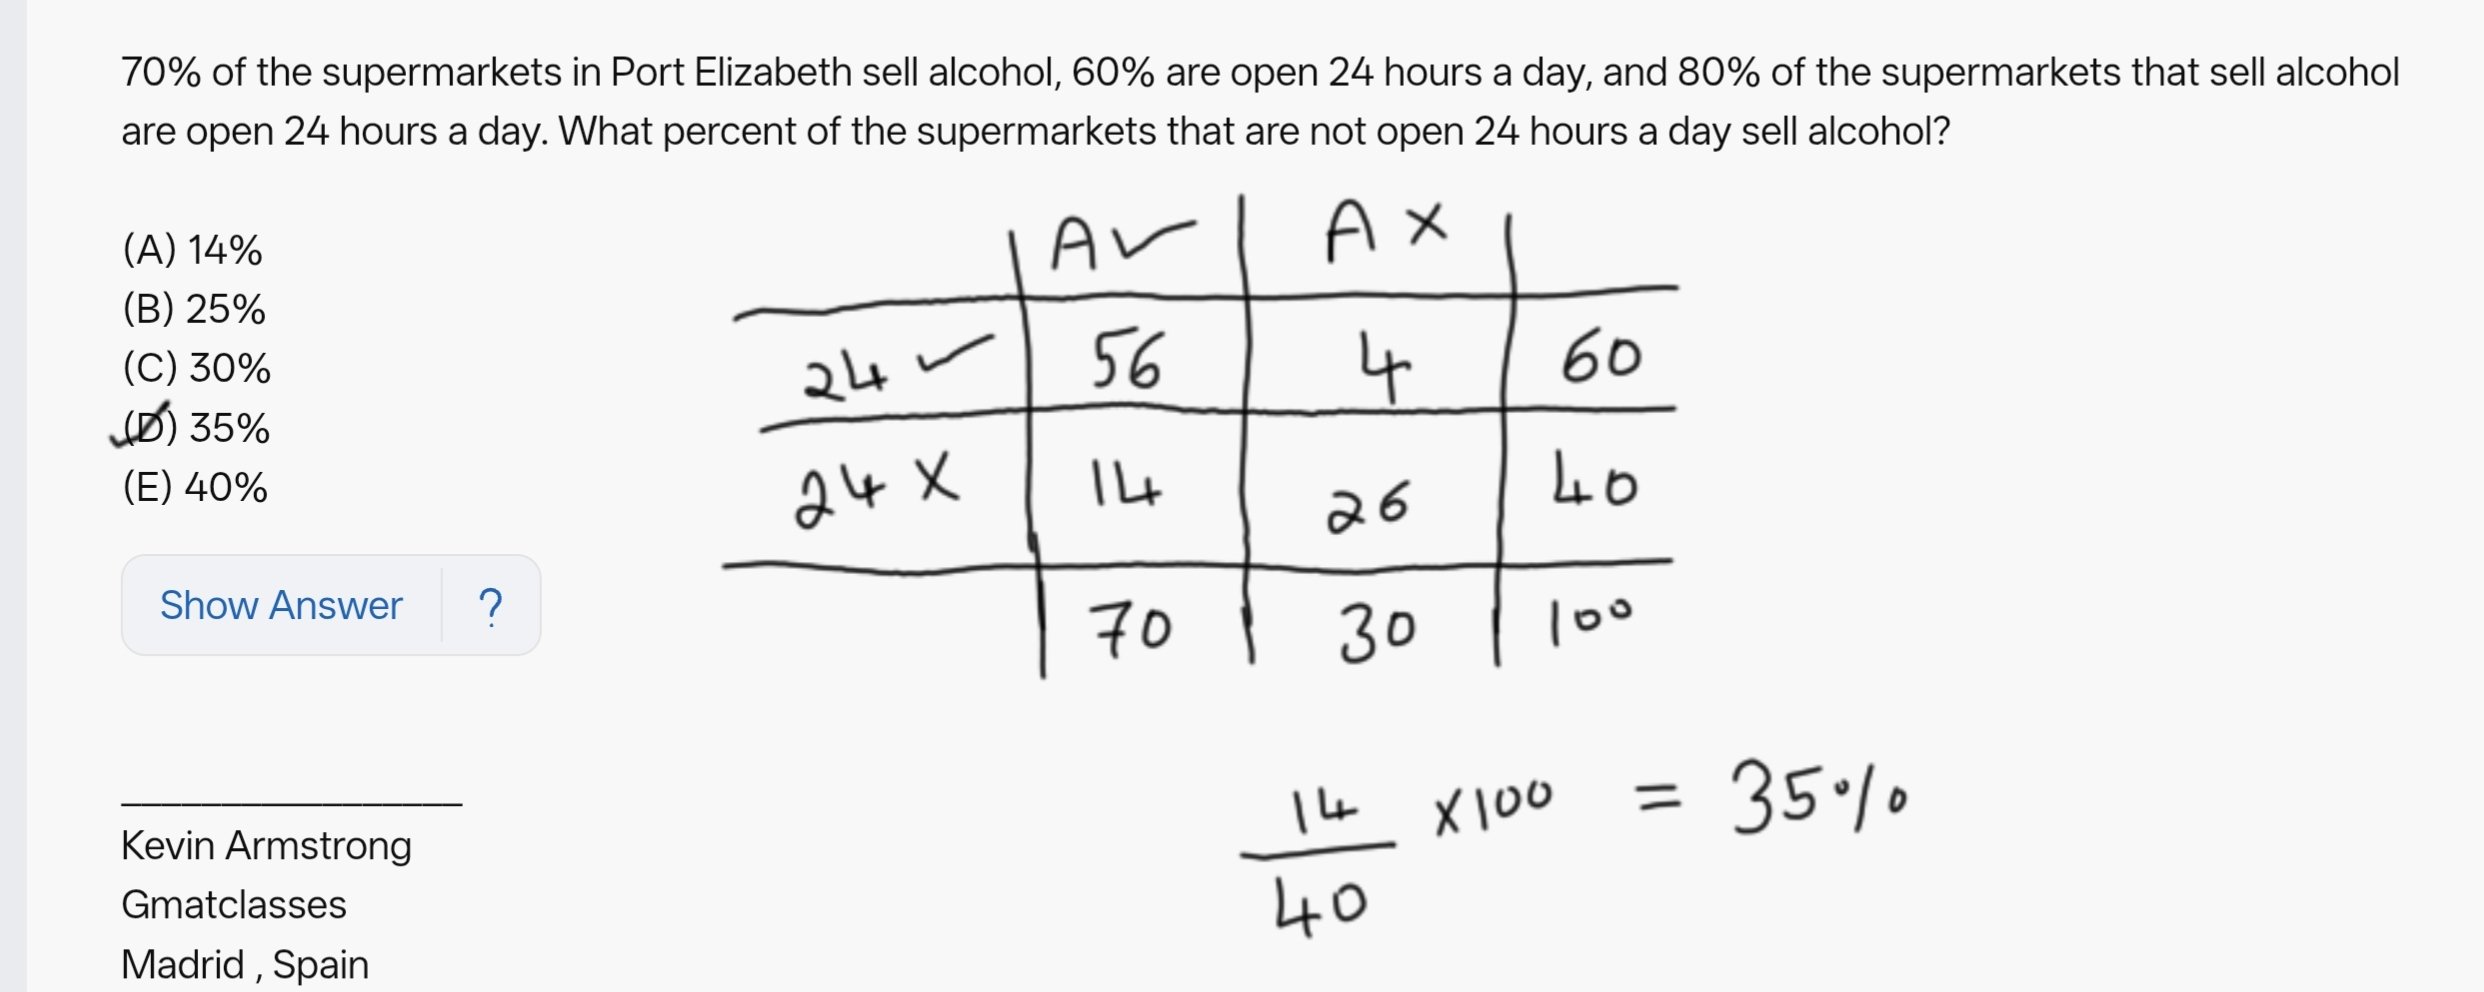 70% of the supermarkets in Port Elizabeth sell alcohol, 60% are open 24 hours a day, and 80% of the supermarkets that sell alcohol
are open 24 hours a day. What percent of the supermarkets that are not open 24 hours a day sell alcohol?
(A) 14%
(B) 25%
(C) 30%
(D) 35%
(E) 40%
A✓ A×
24✓ 56 4 60
24× 14 26 40
70 30 100
Show Answer ?
14/40 ×100 = 35%
Kevin Armstrong
Gmatclasses
Madrid , Spain